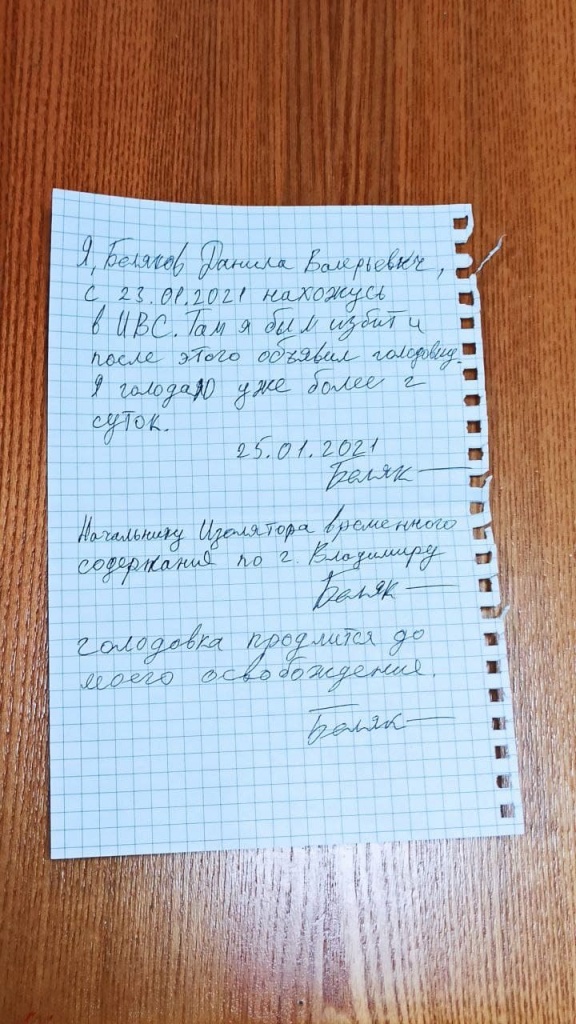 Я, Беляков Данила Валерьевич,
с 23.01.2021 нахожусь
в ИВС. Там я был избит и
после этого объявил голодовку.
Я голодаю уже более 2
суток.
25.01.2021
Беляк
Начальнику Изолятора временного
содержания по г. Владимиру
Беляк
голодовка продлится до
моего освобождения.
Беляк